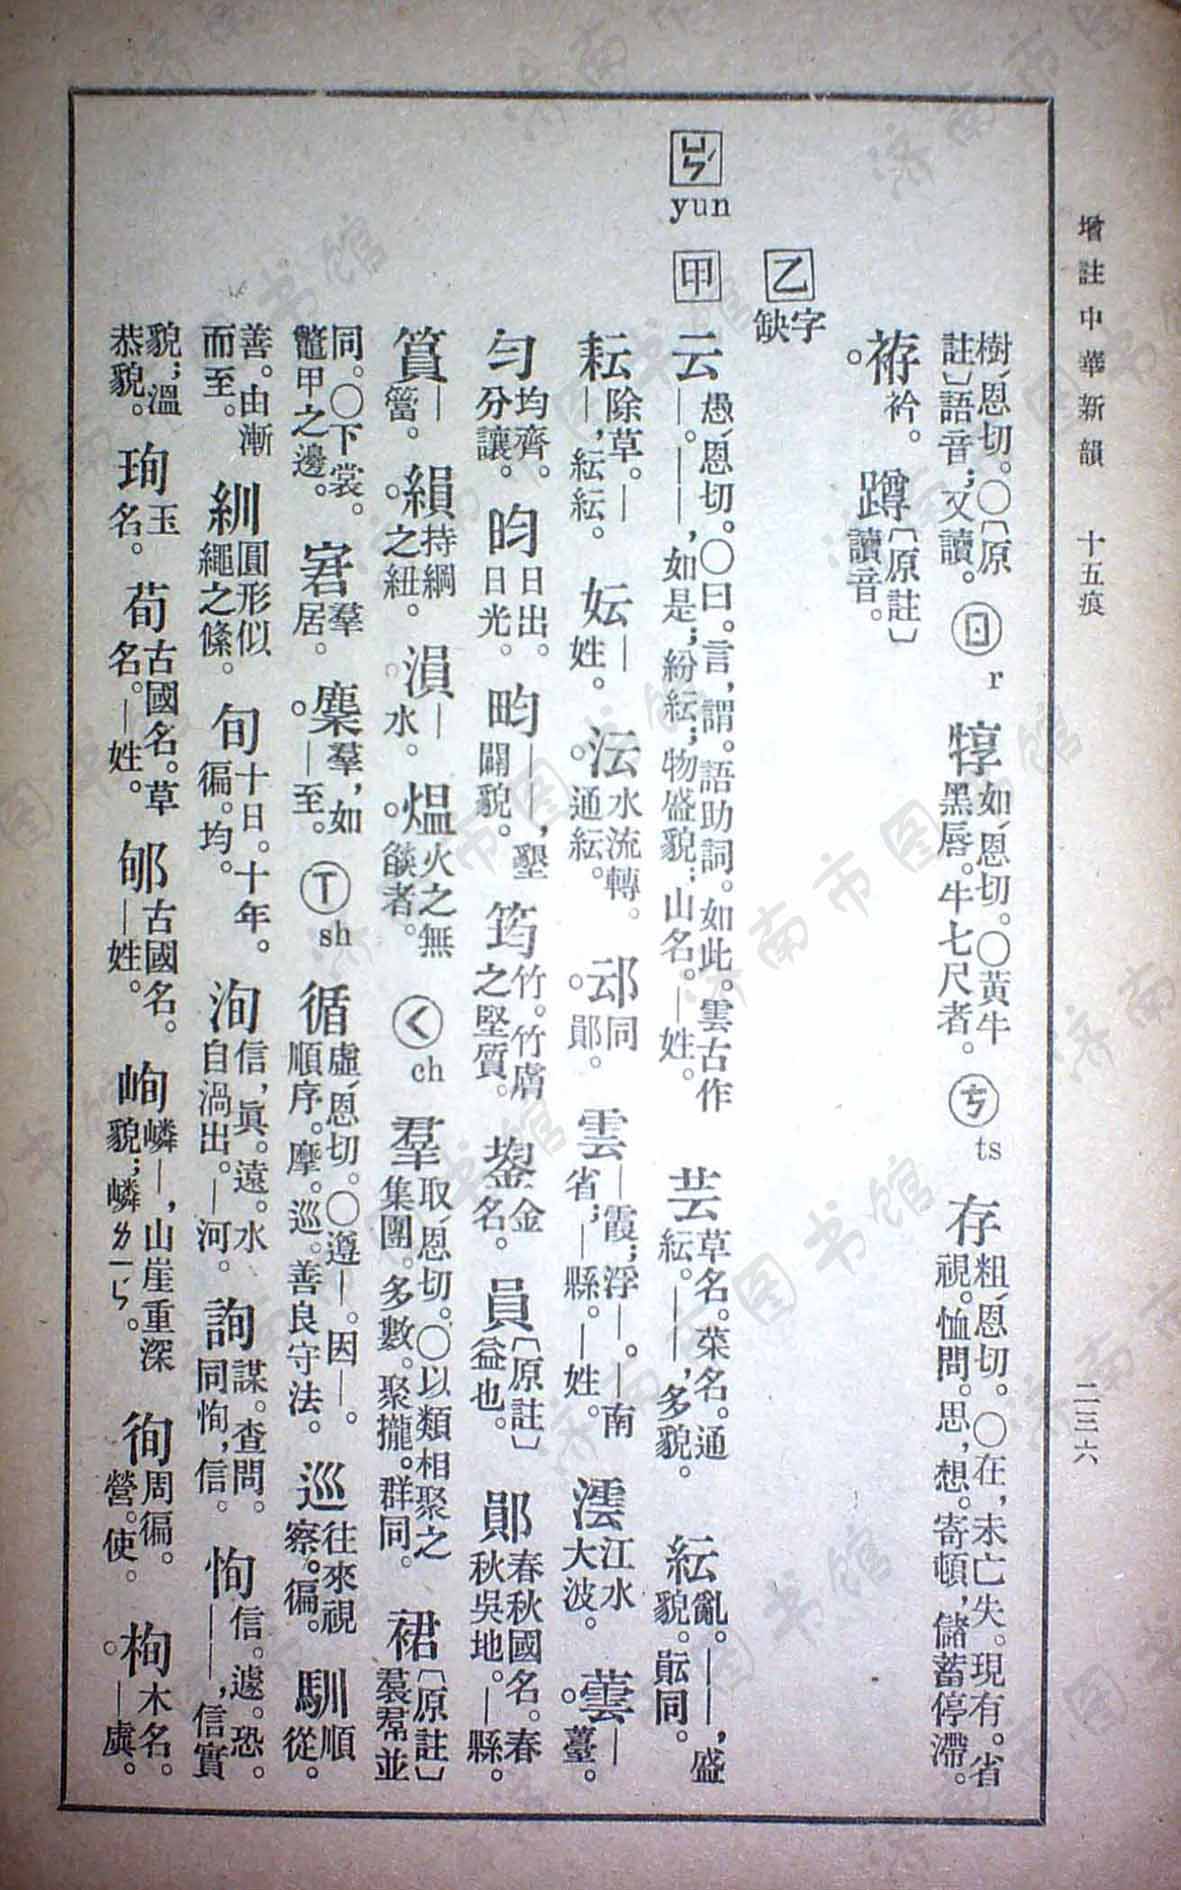 增註中華新韻　十五痕　二三六
樹ˊ恩切。〇〔原註〕語音；又讀。 ㄖ r 犉如ˊ恩切。〇黃牛黑唇。牛七尺者。 ㄘ ts 存粗ˊ恩切。〇在，未亡失。現有。省視。恤問。思，想。寄頓，儲蓄停滯。
袸衿。 蹲〔原註〕讀音。
乙 缺字
ㄩㄣ yun 甲 云愚ˊ恩切。〇曰。言，謂。語助詞。如此。雲古作—。——，如是；紛紜；物盛貌；山名。—姓。 芸草名。菜名。通紜。——，多貌。 紜亂。——，盛貌。䢵同。
耘除草。——，紜紜。 妘—姓。 沄水流轉。通紜。 邧同鄖。 雲—霞；浮—。—南省；—縣。—姓。 澐江水大波。 蕓—薹。
勻均齊。分讓。 昀日出。日光。 畇——，墾闢貌。 筠竹。竹膚之堅質。 鋆金名。 員〔原註〕益也。 鄖春秋國名。春秋吳地。—縣。
篔—簹。 縜持綱之紐。 溳—水。 熅火之無燄者。 ㄑ ch 羣取ˊ恩切。〇以類相聚之集團。多數。聚攏。群同。 裙〔原註〕裠帬並
同。〇下裳。鼈甲之邊。 宭羣居。 麇羣，如—至。 ㄒ sh 循虛ˊ恩切。〇遵—。因—。順序。摩。巡。善良守法。 巡往來視察。徧。 馴順從。
善。由漸而至。 紃圓形似繩之絛。 旬十日。十年。徧。均。 洵信，眞。遠。水自渦出。—河。 詢謀。查問。同恂，信。 恂信。遽。恐。——，信實
貌；溫恭貌。 珣玉名。 荀古國名。草名。—姓。 郇古國名。—姓。 峋嶙—，山崖重深貌；嶙ㄌㄧㄣˊ。 徇周徧。營。使。 栒木名。—虡。